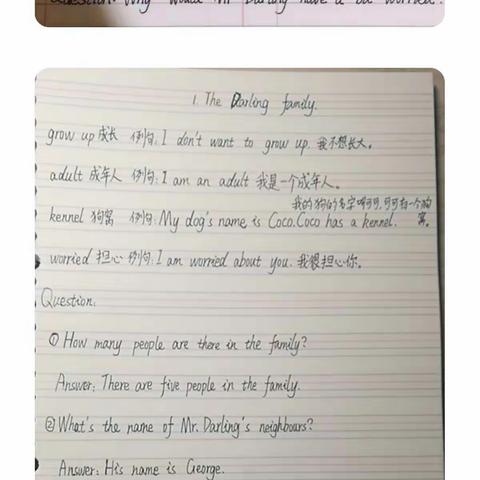 Question: Why would Mr Darling have a be worried?
1. The Darling family.
grow up 成长 例句: I don't want to grow up. 我不想长大。
adult 成年人 例句: I am an adult 我是一个成年人。
我的狗的名字叫可可,可可有一个狗
kennel 狗窝 例句: My dog's name is Coco. Coco has a kennel. 窝。
worried 担心 例句: I am worried about you. 我很担心你。
Question.
① How many people are there in the family?
Answer: There are five people in the family.
② What's the name of Mr. Darling's neighbours?
Answer: His name is George.